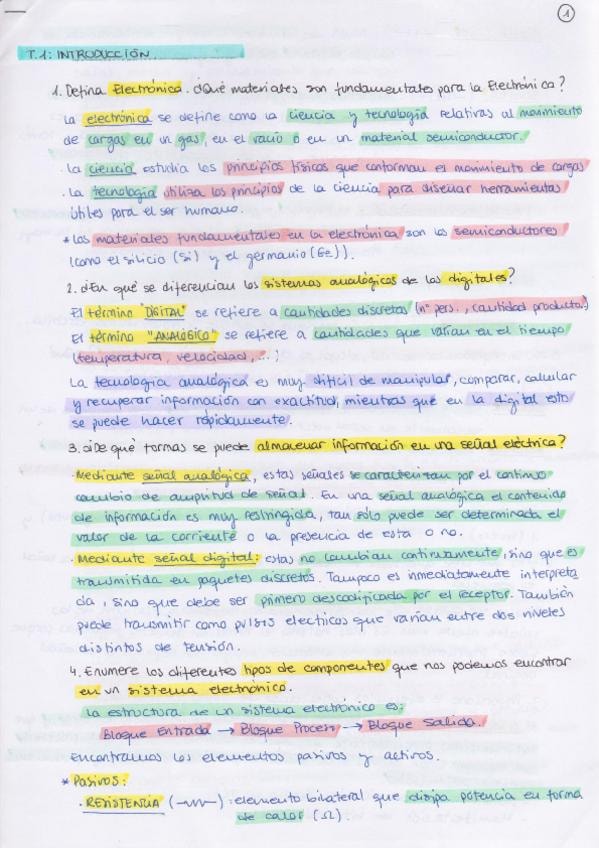 1
T.1: INTRODUCCIÓN.
1. Defina Electrónica. ¿Qué materiales son fundamentales para la Electrónica?
La electrónica se define como la ciencia y tecnología relativas al movimiento
de cargas en un gas, en el vacío o en un material semiconductor.
· La ciencia estudia los principios físicos que conforman el movimiento de cargas
· La tecnología utiliza los principios de la ciencia para diseñar herramientas
útiles para el ser humano.
* Los materiales fundamentales en la electrónica son los semiconductores
(como el silicio (Si) y el germanio (Ge)).
2. ¿En qué se diferencian los sistemas analógicos de los digitales?
El término "DIGITAL" se refiere a cantidades discretas (nº pers., cantidad producto.)
El término "ANALÓGICO" se refiere a cantidades que varían en el tiempo
(temperatura, velocidad, ...)
La tecnología analógica es muy difícil de manipular, comparar, calcular
y recuperar información con exactitud, mientras que en la digital esto
se puede hacer rápidamente.
3. ¿De qué formas se puede almacenar información en una señal eléctrica?
· Mediante señal analógica, estas señales se caracterizan por el continuo
cambio de amplitud de señal. En una señal analógica el contenido
de información es muy restringida, tan sólo puede ser determinada el
valor de la corriente o la presencia de esta o no.
· Mediante señal digital: estas no cambian continuamente, sino que es
transmitida en paquetes discretos. Tampoco es inmediatamente interpreta
da, sino que debe ser primero descodificada por el receptor. También
puede transmitir como pulsos electricos que varían entre dos niveles
distintos de tensión.
4. Enumere los diferentes tipos de componentes que nos podemos encontrar
en un sistema electrónico.
La estructura de un sistema electrónico es:
Bloque Entrada → Bloque Proceso → Bloque Salida.
Encontramos los elementos pasivos y activos.
* Pasivos:
· RESISTENCIA ( ) : elemento bilateral que disipa potencia en forma
de calor (Ω).